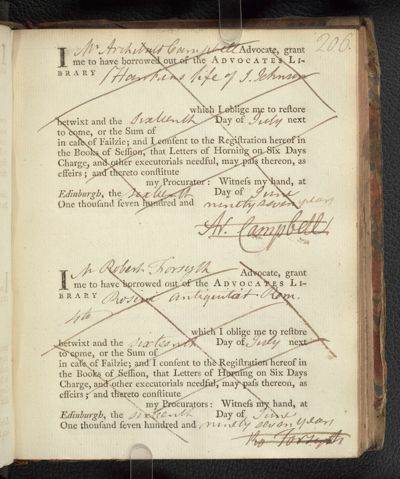 206.
I Mr Archibald Campbell Advocate, grant
me to have borrowed out of the ADVOCATES LI-
BRARY Hawkins life of S. Johnson
which I oblige me to reſtore
betwixt and the sixteenth Day of July next
to come, or the Sum of
in caſe of Failzie; and I conſent to the Regiſtration hereof in
the Books of Seſſion, that Letters of Horning on Six Days
Charge, and other executorials needful, may paſs thereon, as
effeirs; and thereto conſtitute
my Procurator: Witneſs my hand, at
Edinburgh, the sixteenth Day of June
One thouſand ſeven hundred and ninety seven years
Ar. Campbell
I Mr Robert Forsyth Advocate, grant
me to have borrowed out of the ADVOCATES LI-
BRARY Rosini Antiquitat Rom.
4to
which I oblige me to reſtore
betwixt and the sixteenth Day of July next
to come, or the Sum of
in caſe of Failzie; and I conſent to the Regiſtration hereof in
the Books of Seſſion, that Letters of Horning on Six Days
Charge, and other executorials needful, may paſs thereon, as
effeirs; and thereto conſtitute
my Procurators: Witneſs my hand, at
Edinburgh, the sixteenth Day of June
One thouſand ſeven hundred and ninety seven years
Forsyth